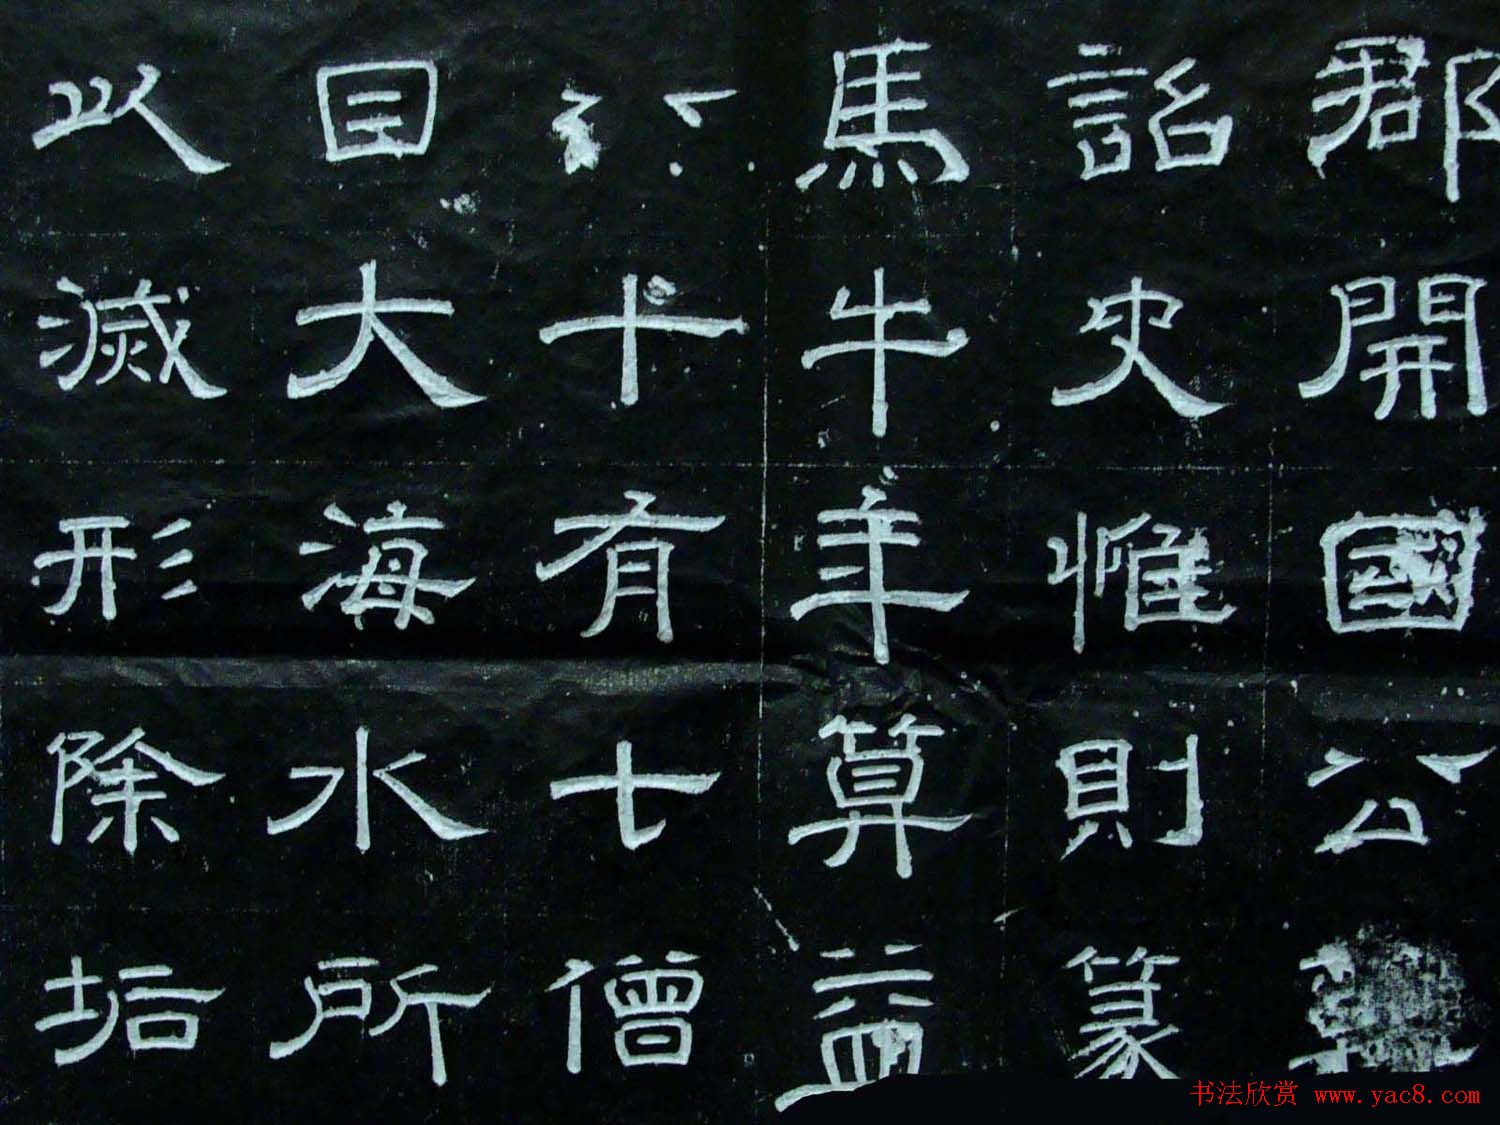 郡開國公韓
詔史惟則篆
馬牛羊算益
於十有七僧
曰大海水所
以滅形除垢
书法欣赏 www.yac8.com